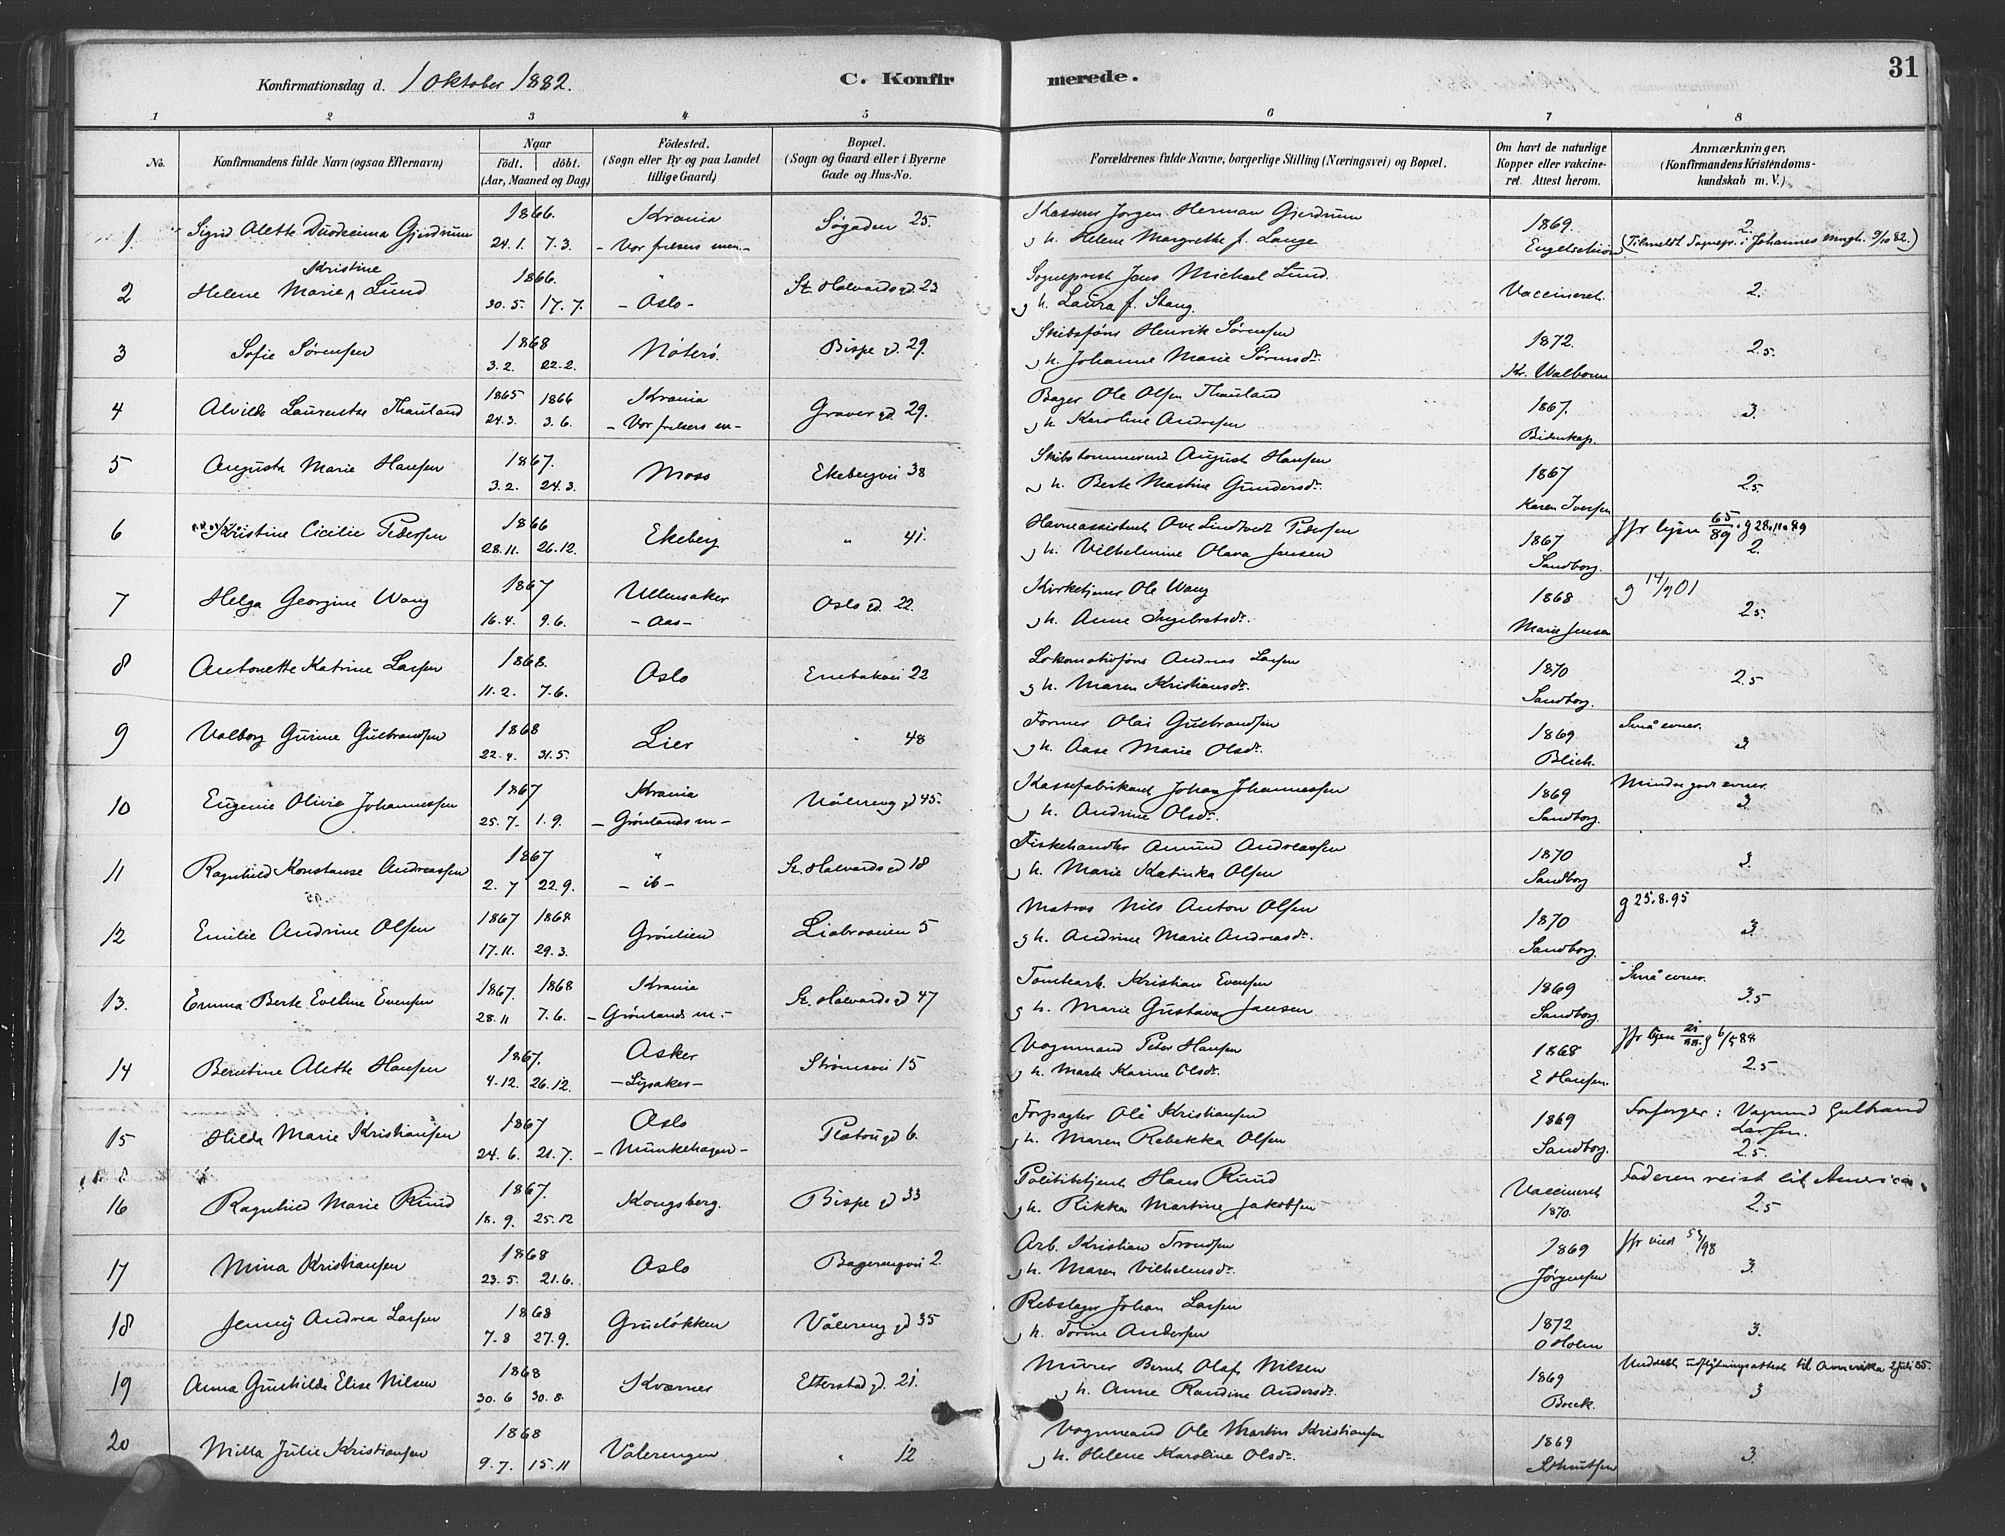 31
Konfirmationsdag d. 1 Oktober 1882.
C. Konfirmerede.
1 2 3 4 5 6 7 8
No.
Konfirmandens fulde Navn (ogsaa Efternavn)
Naar
födt. döbt.
(Aar, Maaned og Dag)
Födested.
(Sogn eller By og paa Landet
tillige Gaard)
Bopæl.
(Sogn og Gaard eller i Byerne
Gade og Hus-No.
Forældrenes fulde Navne, borgerlige Stilling (Næringsvei) og Bopæl.
Om havt de naturlige
Kopper eller vakcine-
ret. Attest herom.
Anmærkninger.
(Konfirmandens Kristendoms-
kundskab m. V.)
1. Sigrid Alette Duodecima Gjerdrum 1866. 24.1. 7.3. Krania - Vor frelsers men.- Søgaden 25. Kasserer Jørgen Herman Gjerdrum
g h. Helene Margrethe f. Lange 1869 2.
2 Helene Marie Kristine Lund 1866. 30.5. 17.7. " - Oslo - St. Halvards gd. 23 Sogneprest Jens Michael Lund
g h. Laura f. Stang. Vaccineret. 2.
3 Sofie Sørensen 1868 3.2. 22.2. Nøterø. Bispe gd. 29. Skibsfører Henrik Sørensen
g h. Johanne Marie Sørensdr. 1872. Kr. Walborm 2.5.
4 Alvilde Laurentse Thauland 1865 24.3. 1866 3.6. Krania - Vor frelsers m- Graver gd 29. Bager Ole Olsen Thauland
g h. Karoline Andresen 1867. Bidenkap. 3.
5 Augusta Marie Hansen 1867. 3.2. 24.3. Moss Ekebergvei 38 Skibstømmermd August Hansen
g h. Berte Martine Gundersdr. 1867 Karen Iversen 2.5
6 Kristine Cicilie Pedersen 1866 28.11. 26.12. Ekeberg " 41. Havneassistent Ove Lindtvedt Pedersen
g h. Vilhelmine Olava Jensen 1867 Sandborg. Jfr lysn 65/89. g 28.11.89 2.
7 Helga Georgine Wang 1867 16.4. 9.6. Ullensaker - Aas - Oslo gd. 22. Kirketjener Ole Wang
g h. Anne Ingebretsdr. 1868 Marie Jensen g 14/9 01 2.5
8 Antonette Katrine Larsen 1868. 11.2. 7.6. Oslo Enebakvei 22 Lokomotivfører Andreas Larsen
g h. Maren Kristiansdr. 1870 Sandborg. 2.5
9 Valborg Gurine Gulbrandsen 1868 22.4. 31.5. Lier " 48 Former Olai Gulbrandsen
g h. Aase Marie Olsdr. 1869 Blich. Små evner. 3
10 Eugenie Olivie Johannessen 1867 25.7. 1.9. Krania - Grønlands m- Vålereng gd 45. Kassefabrikant Johan Johannessen
g h. Andrine Olsdr. 1869 Sandborg. Mindre gode evner. 3.
11 Ragnhild Konstanse Andreassen 1867 2.7 22.9. " - ib - St. Halvards gd 18 Fiskehandler Amund Andreassen
g h. Marie Katinka Olsen 1870 Sandborg 3.
12 Emilie Andrine Olsen 1867 17.11. 1868 29.3. Grønlien Liabroveien 5 Matros Nils Anton Olsen
g h. Andrine Marie Andreasdr. 1870 Sandborg. g 25.8.95 3.
13. Emma Berte Eveline Evensen 1867. 28.11 1868 7.6. Krania - Grønlands m.- St. Halvards gd 47 Tomtearb. Kristian Evensen
g h. Marie Gustava Jensen 1869 Sandborg. Små evner. 3.5
14 Berntine Alette Hansen 1867. 4.12. 26.12. Asker - Lysaker - Strømsvei 15 Vognmand Peter Hansen
g h. Marte Karine Olsdr. 1868 E Hansen. Jfr lysn g 6/5 88 2.5
15 Hilda Marie Kristiansen 1867 24.6. 21.7. Oslo - Munkehagen - Platou gd 6. Forpagter Ole Kristiansen
g h. Maren Rebekka Olsen 1869 Sandborg. Forsørger: Vognmd Gulbrand
Larsen. 2.5.
16 Ragnhild Marie Ruud 1867. 18.9. 25.12 Kongsberg. Bispe gd 33 Politibetjent Hans Ruud
g h. Rikka Martine Jakobsen Vaccineret 1870. Faderen reist til Amerika. 2.5
17 Mina Kristiansen 1868 23.5. 21.6. Oslo Bagerengvei 2. Arb. Kristian Trondsen
g h. Maren Vilhelmsdr. 1869 Jørgensen Jfr vied 53/98 3.
18 Jenny Andrea Larsen 1868 7.8 27.9. Grueløkken Vålereng gd 35 Rebslager Johan Larsen
g h. Torine Andersen 1872 O Holm 3.
19 Anna Gunhilde Elise Nilsen 1868 30.6 30.8. Kværner Etterstad gd. 21. Murer Bernt Olaf Nilsen
g h. Anne Randine Andersdr. 1869 Boeck. Meddelt udflytningsattest til Amerika 2 juli 85. 3
20 Milla Julie Kristiansen 1868 9.7. 15.11 Vålerengen " 12 Vognmand Ole Martin Kristiansen
g h. Helene Karoline Olsdr. 1869 S. Knutsen 3.